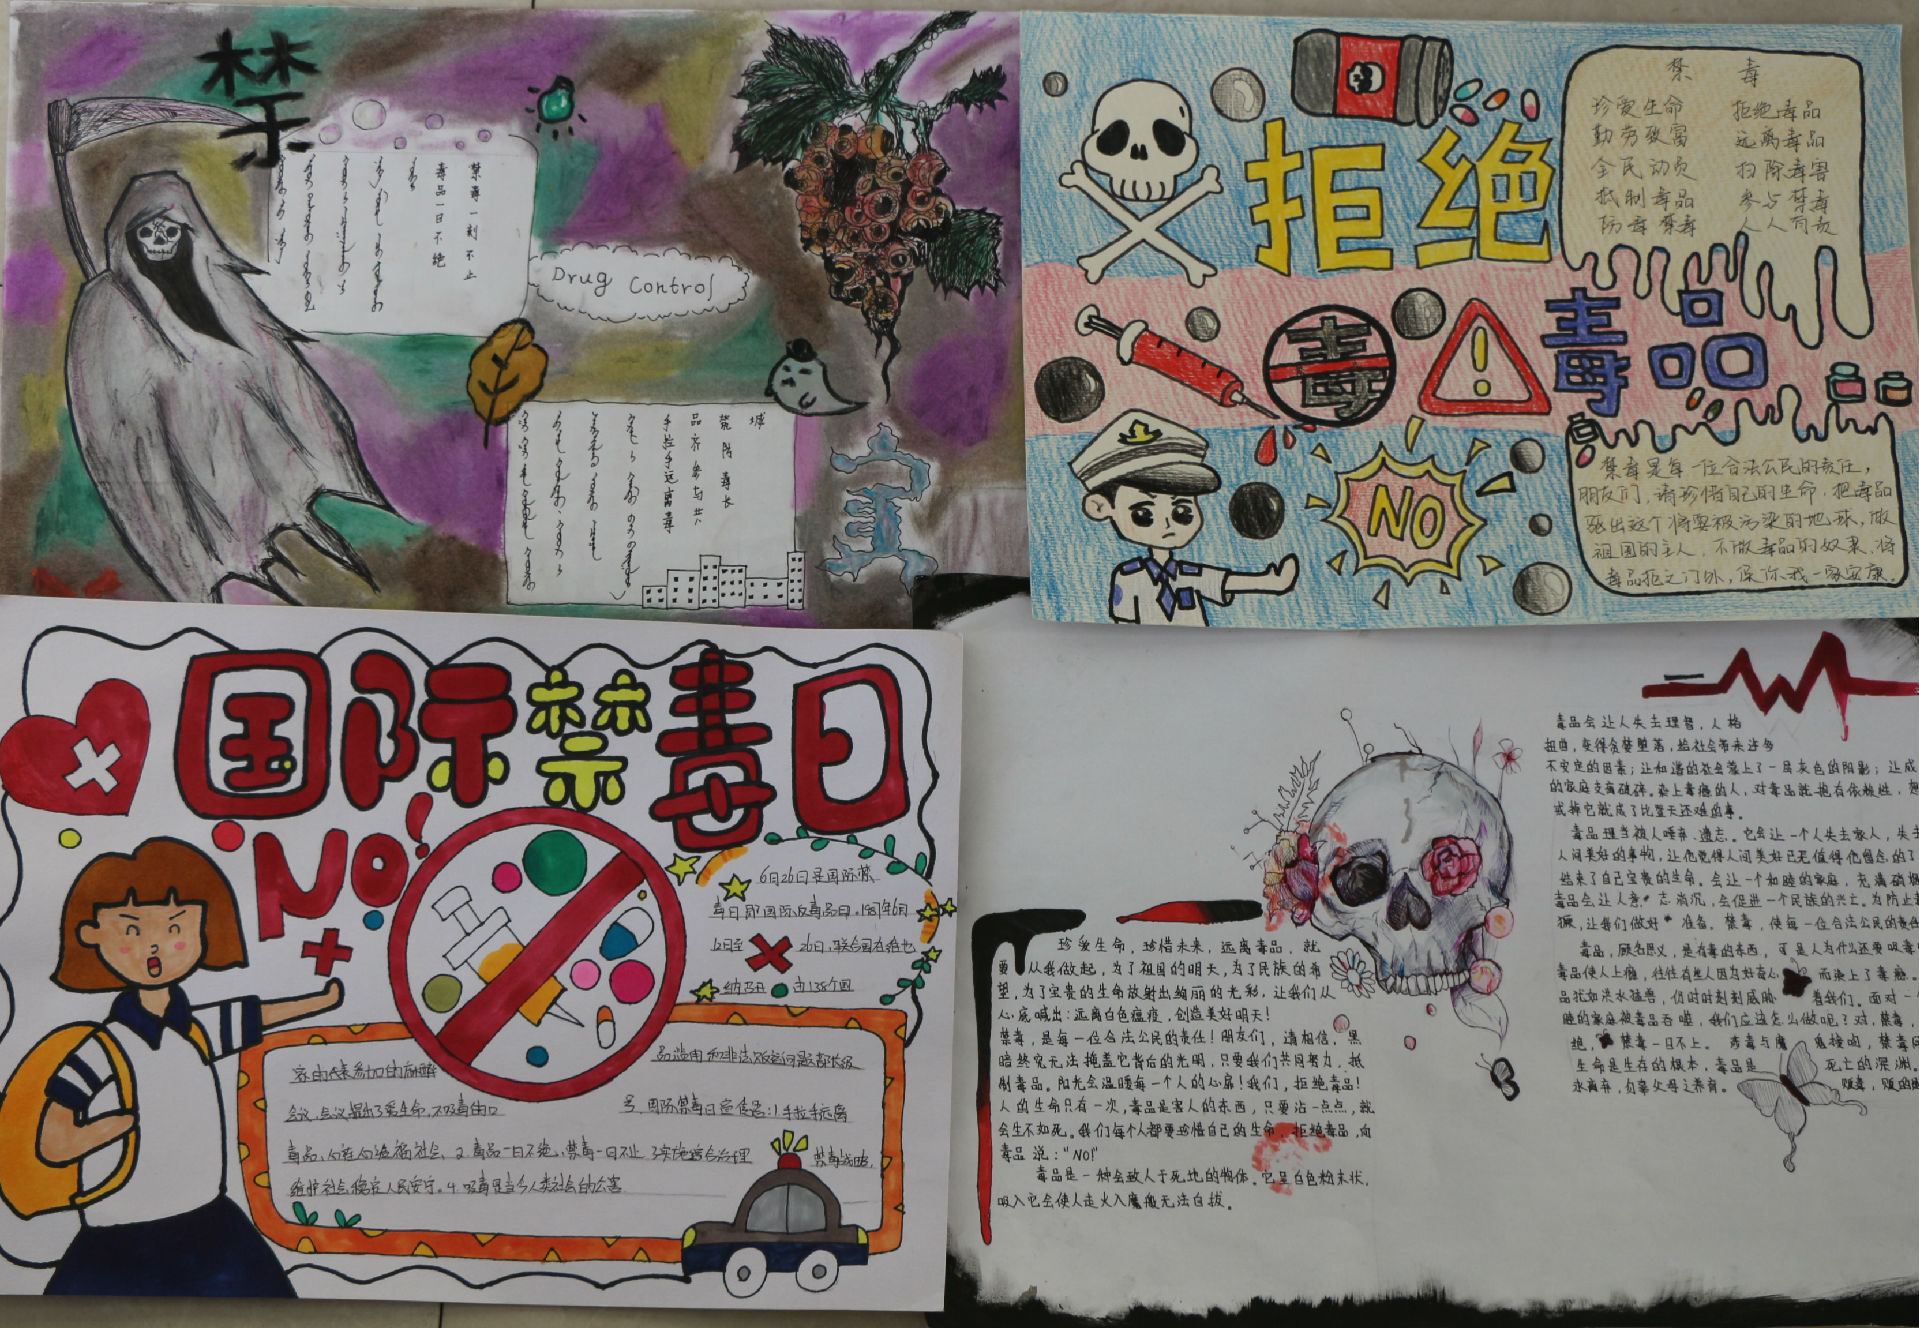 禁
禁毒一刻不止
毒品一日不绝
Drug Control
城
筑防毒长
品齐参与共
手拉手远离毒
拒绝
毒
毒品
NO
禁 毒
珍爱生命 拒绝毒品
勤劳致富 远离毒品
全民动员 扫除毒害
抵制毒品 参与禁毒
防毒禁毒 人人有责
禁毒是每一位合法公民的责任，
朋友们，请珍惜自己的生命，把毒品
驱出这个将要被污染的地球，做
祖国的主人，不做毒品的奴隶，将
毒品拒之门外，保你我一家安康。
国际禁毒日
NO!
6月26日是国际禁
毒日即国际反毒品日，1987年6月
12日至 26日，联合国在维也
纳召开 由138个国
家的代表参加的麻醉
品滥用和非法贩运问题部长级
会议，会议提出了爱生命，不吸毒的口
号，国际禁毒日宣传语：1.手拉手远离
毒品，心连心造福社会，2.毒品一日不绝，禁毒一日不止 3.实施综合治理 禁毒战略，
维护社会稳定人民安宁。4.吸毒是当今人类社会的公害
珍爱生命，珍惜未来，远离毒品，就
要 从我做起，为了祖国的明天，为了民族的希
望，为了宝贵的生命放射出绚丽的光彩，让我们从
心底喊出：远离白色瘟疫，创造美好明天！
禁毒，是每一位合法公民的责任！朋友们，请相信，黑
暗终究无法掩盖它背后的光明，只要我们共同努力，抵
制毒品。阳光会温暖每一个人的心扉！我们，拒绝毒品！
人的生命只有一次，毒品是害人的东西，只要沾一点点，就
会生不如死。我们每个人都要珍惜自己的生命，拒绝毒品，向
毒品说：“NO！”
毒品是一种会致人于死地的物体。它呈白色粉末状，
吸入它会使人走火入魔般无法自拔。
毒品会让人失去理智，人格
扭曲，变得贪婪堕落，给社会带来许多
不安定的因素；让和谐的社会蒙上了一层灰色的阴影；让成
的家庭支离破碎。染上毒瘾的人，对毒品就抱有依赖性，想
戒掉它就成了比登天还难的事。
毒品理当被人唾弃、遗忘。它会让一个人失去家人，失去
人间美好的事物，让他觉得人间美好已无值得他留念的了
结束了自己宝贵的生命。会让一个和睦的家庭，充满硝烟
毒品会让人意 志消沉，会促进一个民族的兴亡。为防止
獗，让我们做好 准备。禁毒，使每一位合法公民的责任
毒品，顾名思义，是有毒的东西，可是人为什么还要吸毒
毒品使人上瘾，往往有些人因为好奇心， 而染上了毒瘾。
品犹如洪水猛兽，仍时时刻刻威胁 着我们。面对一
睦的家庭被毒品吞噬，我们应该怎么做呢？对，禁毒，
绝， 禁毒一日不止。
生命是生存的根本，毒品是 死亡的深渊。